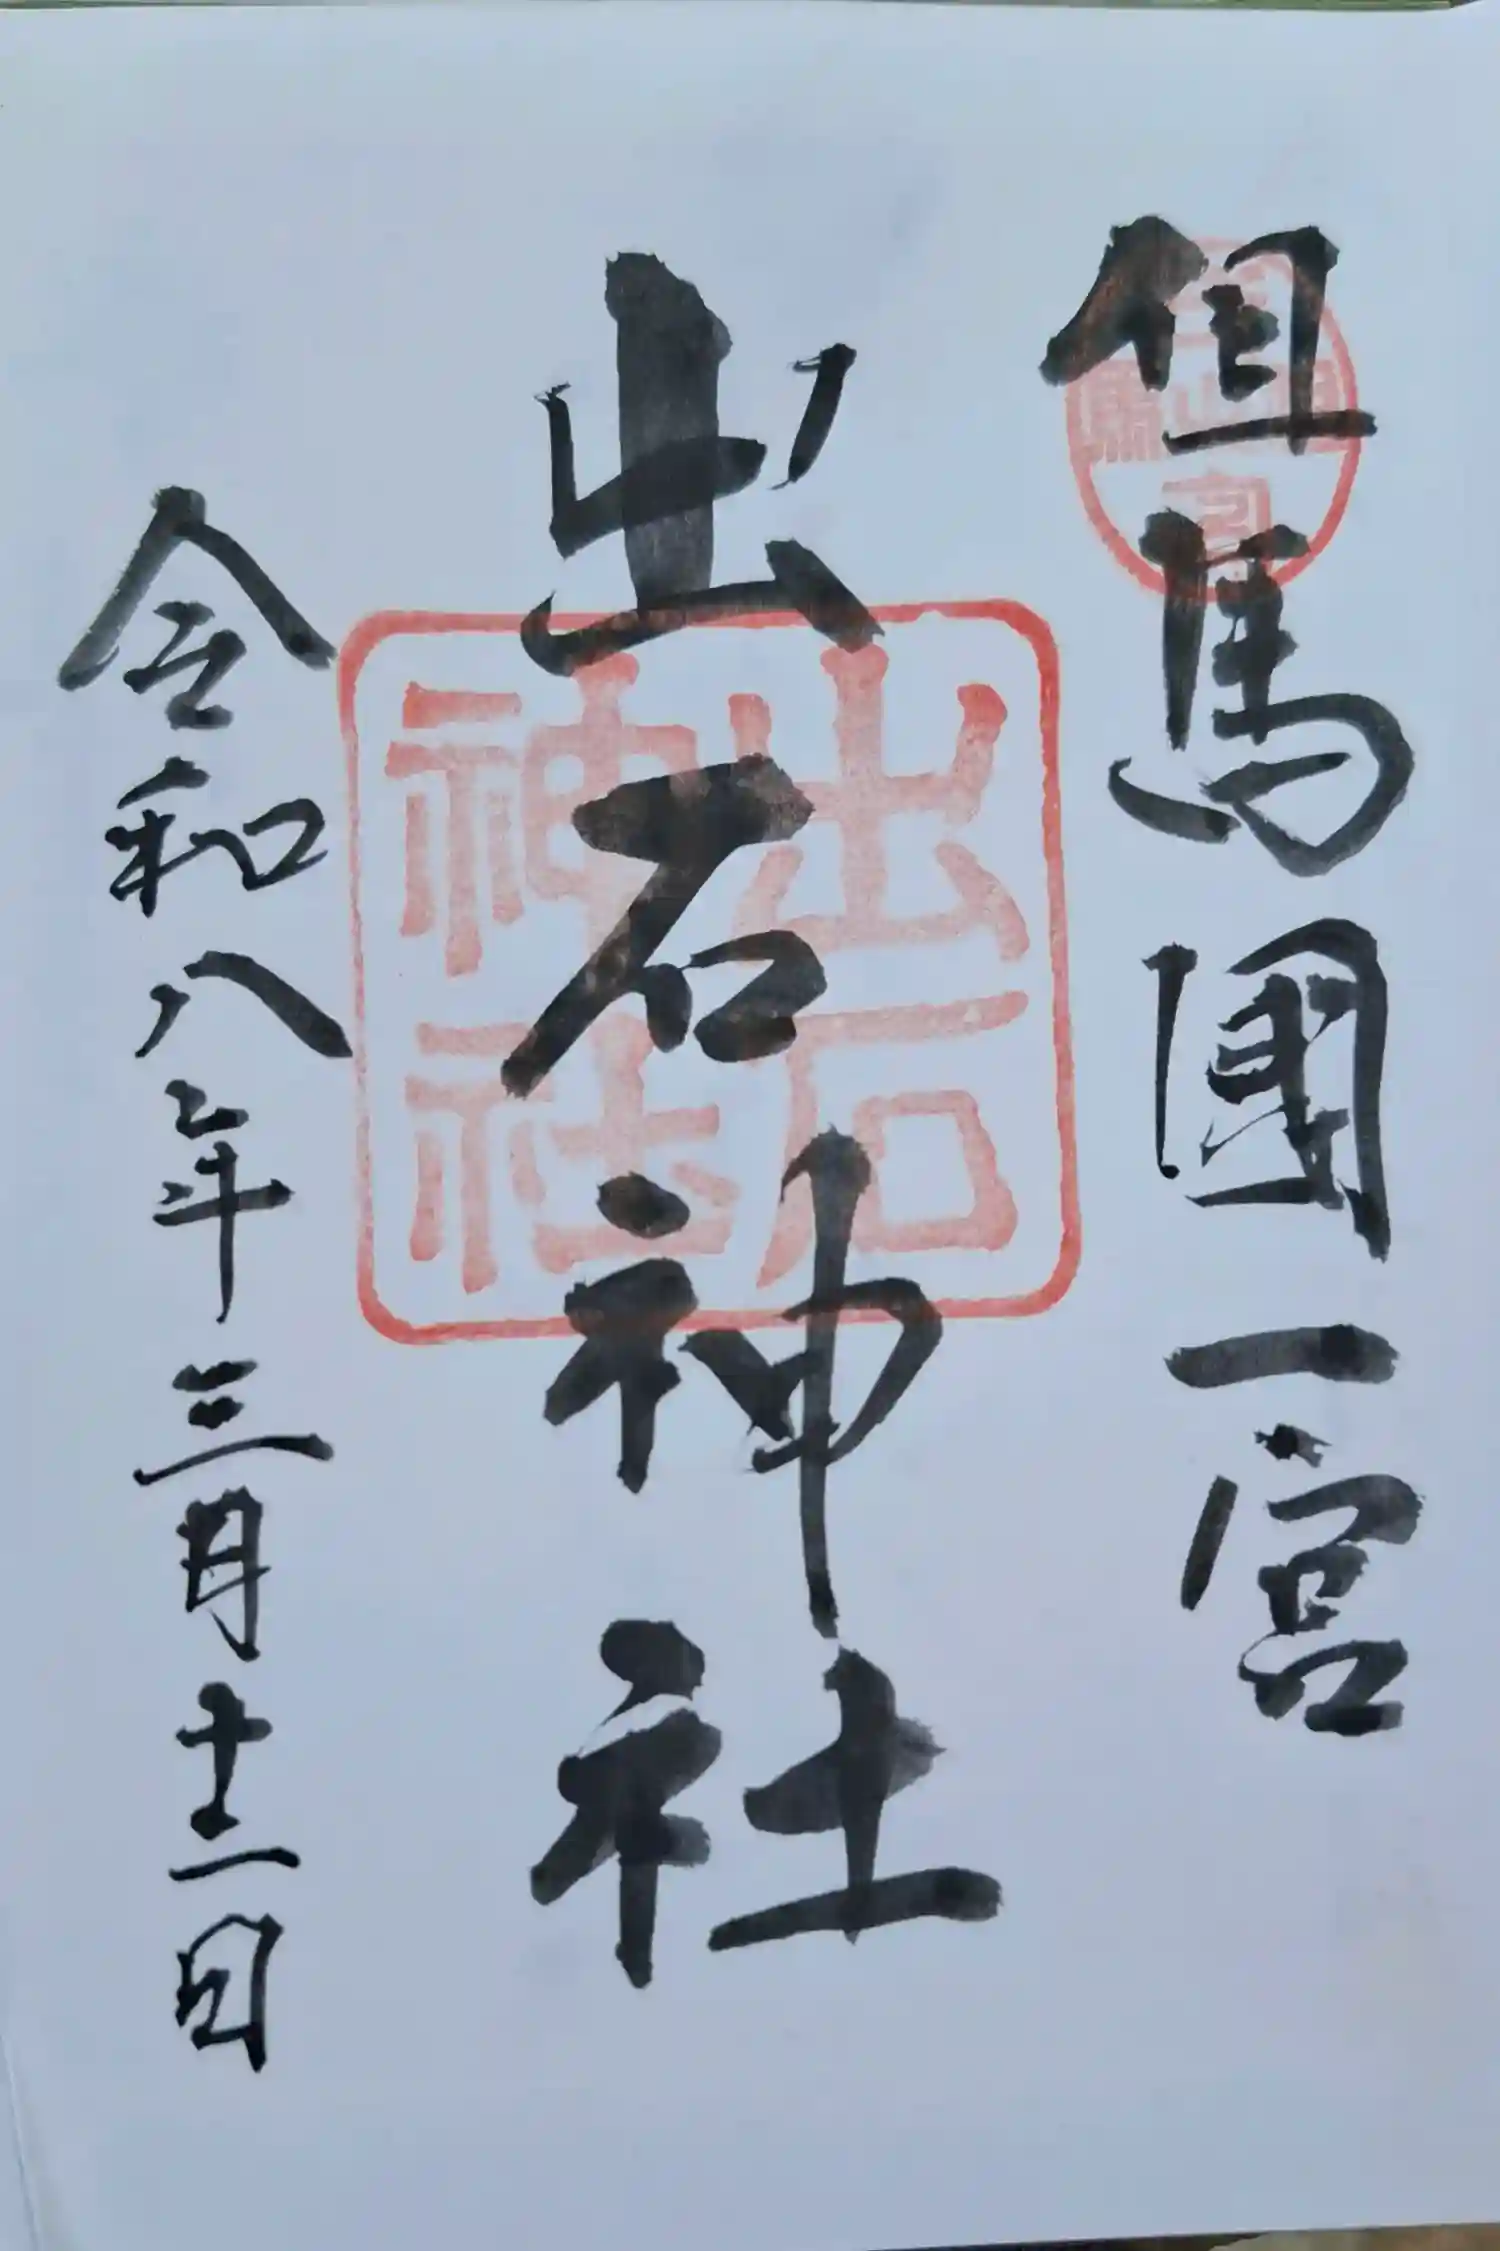 但馬國一宮
出石神社
令和八年三月十二日
出石
神社